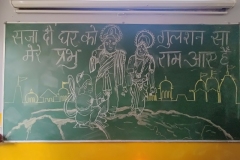 सजा दो घर को गुलशन सा
मेरे प्रभु राम आए हैं